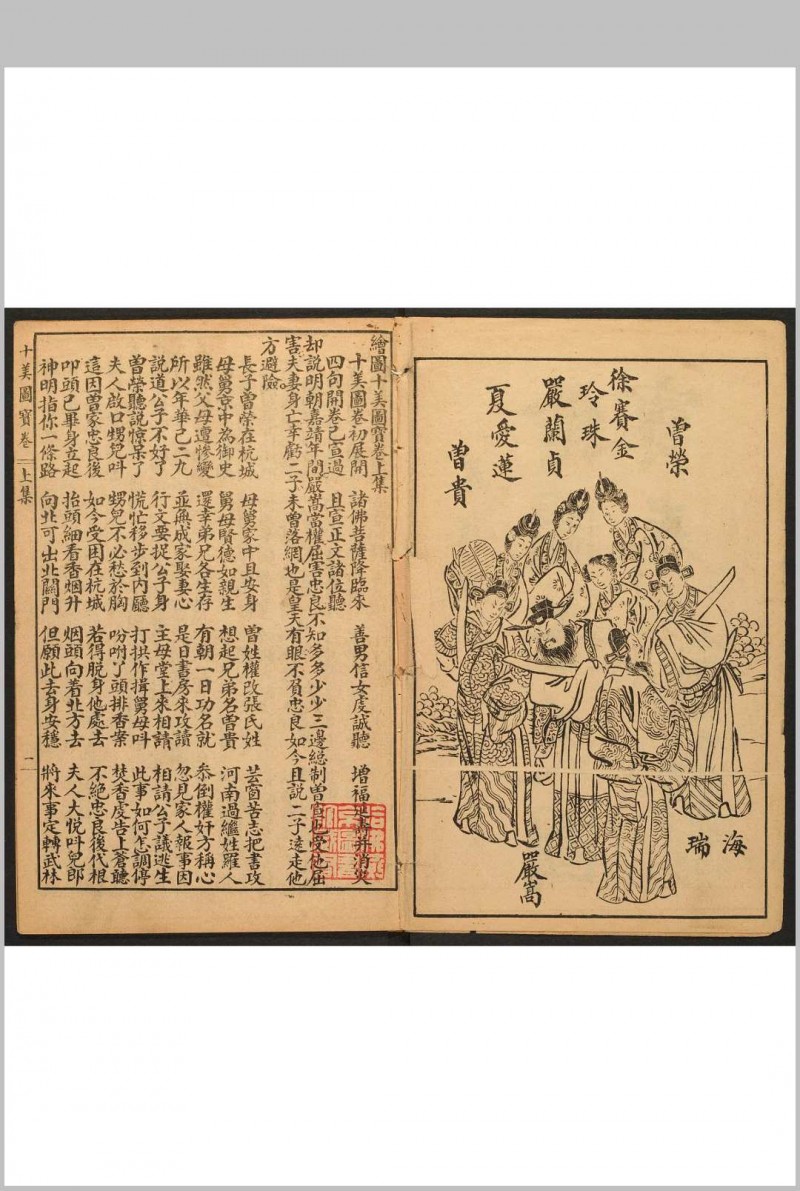 曾榮
徐賽金
玲珠
嚴蘭貞
夏愛蓮
曾貴
海瑞
嚴嵩
繪圖十美圖寶卷上集
十美圖卷初展開 諸佛菩薩降臨來 善男信女虔誠聽 增福延壽并消災
四句開卷已宣過 且宣正文諸位聽
却說明朝嘉靖年間嚴嵩當權屈害忠良不知多多少少三邊總制曾官也受他屈
害夫妻身亡幸虧二子未曾落網也是皇天有眼不負忠良如今且說二子遠走他
方避險
長子曾榮在杭城 母舅家中且安身 曾姓權改張氏姓 芸窗苦志把書攻
母舅京中為御史 舅母賢德如親生 想起兄弟名曾貴 河南過繼姓羅人
雖然父母遭慘變 還幸弟兄各生存 有朝一日功名就 叅倒權奸方稱心
所以年華已二九 並無成家娶妻心 是日書房來攻讀 忽見家人報事因
說道公子不好了 行文要捉公子身 主母堂上來相請 相請公子議逃生
曾榮聽說惊呆了 慌忙移步到內廳 打拱作揖舅母呌 此事如何怎調停
夫人啟口甥兒呌 甥兒不必愁於胸 吩咐了頭排香案 焚香虔告上蒼聽
這因曾家忠良後 如今受困在杭城 若得脫身他處去 不絕忠良後代根
叩頭已畢身立起 抬頭細看香烟升 烟頭向着北方去 夫人大悅呌兒郎
神明指你一條路 向北可出北關門 但願此去身安穩 將來事定轉武林
十美圖寶卷 上集 一